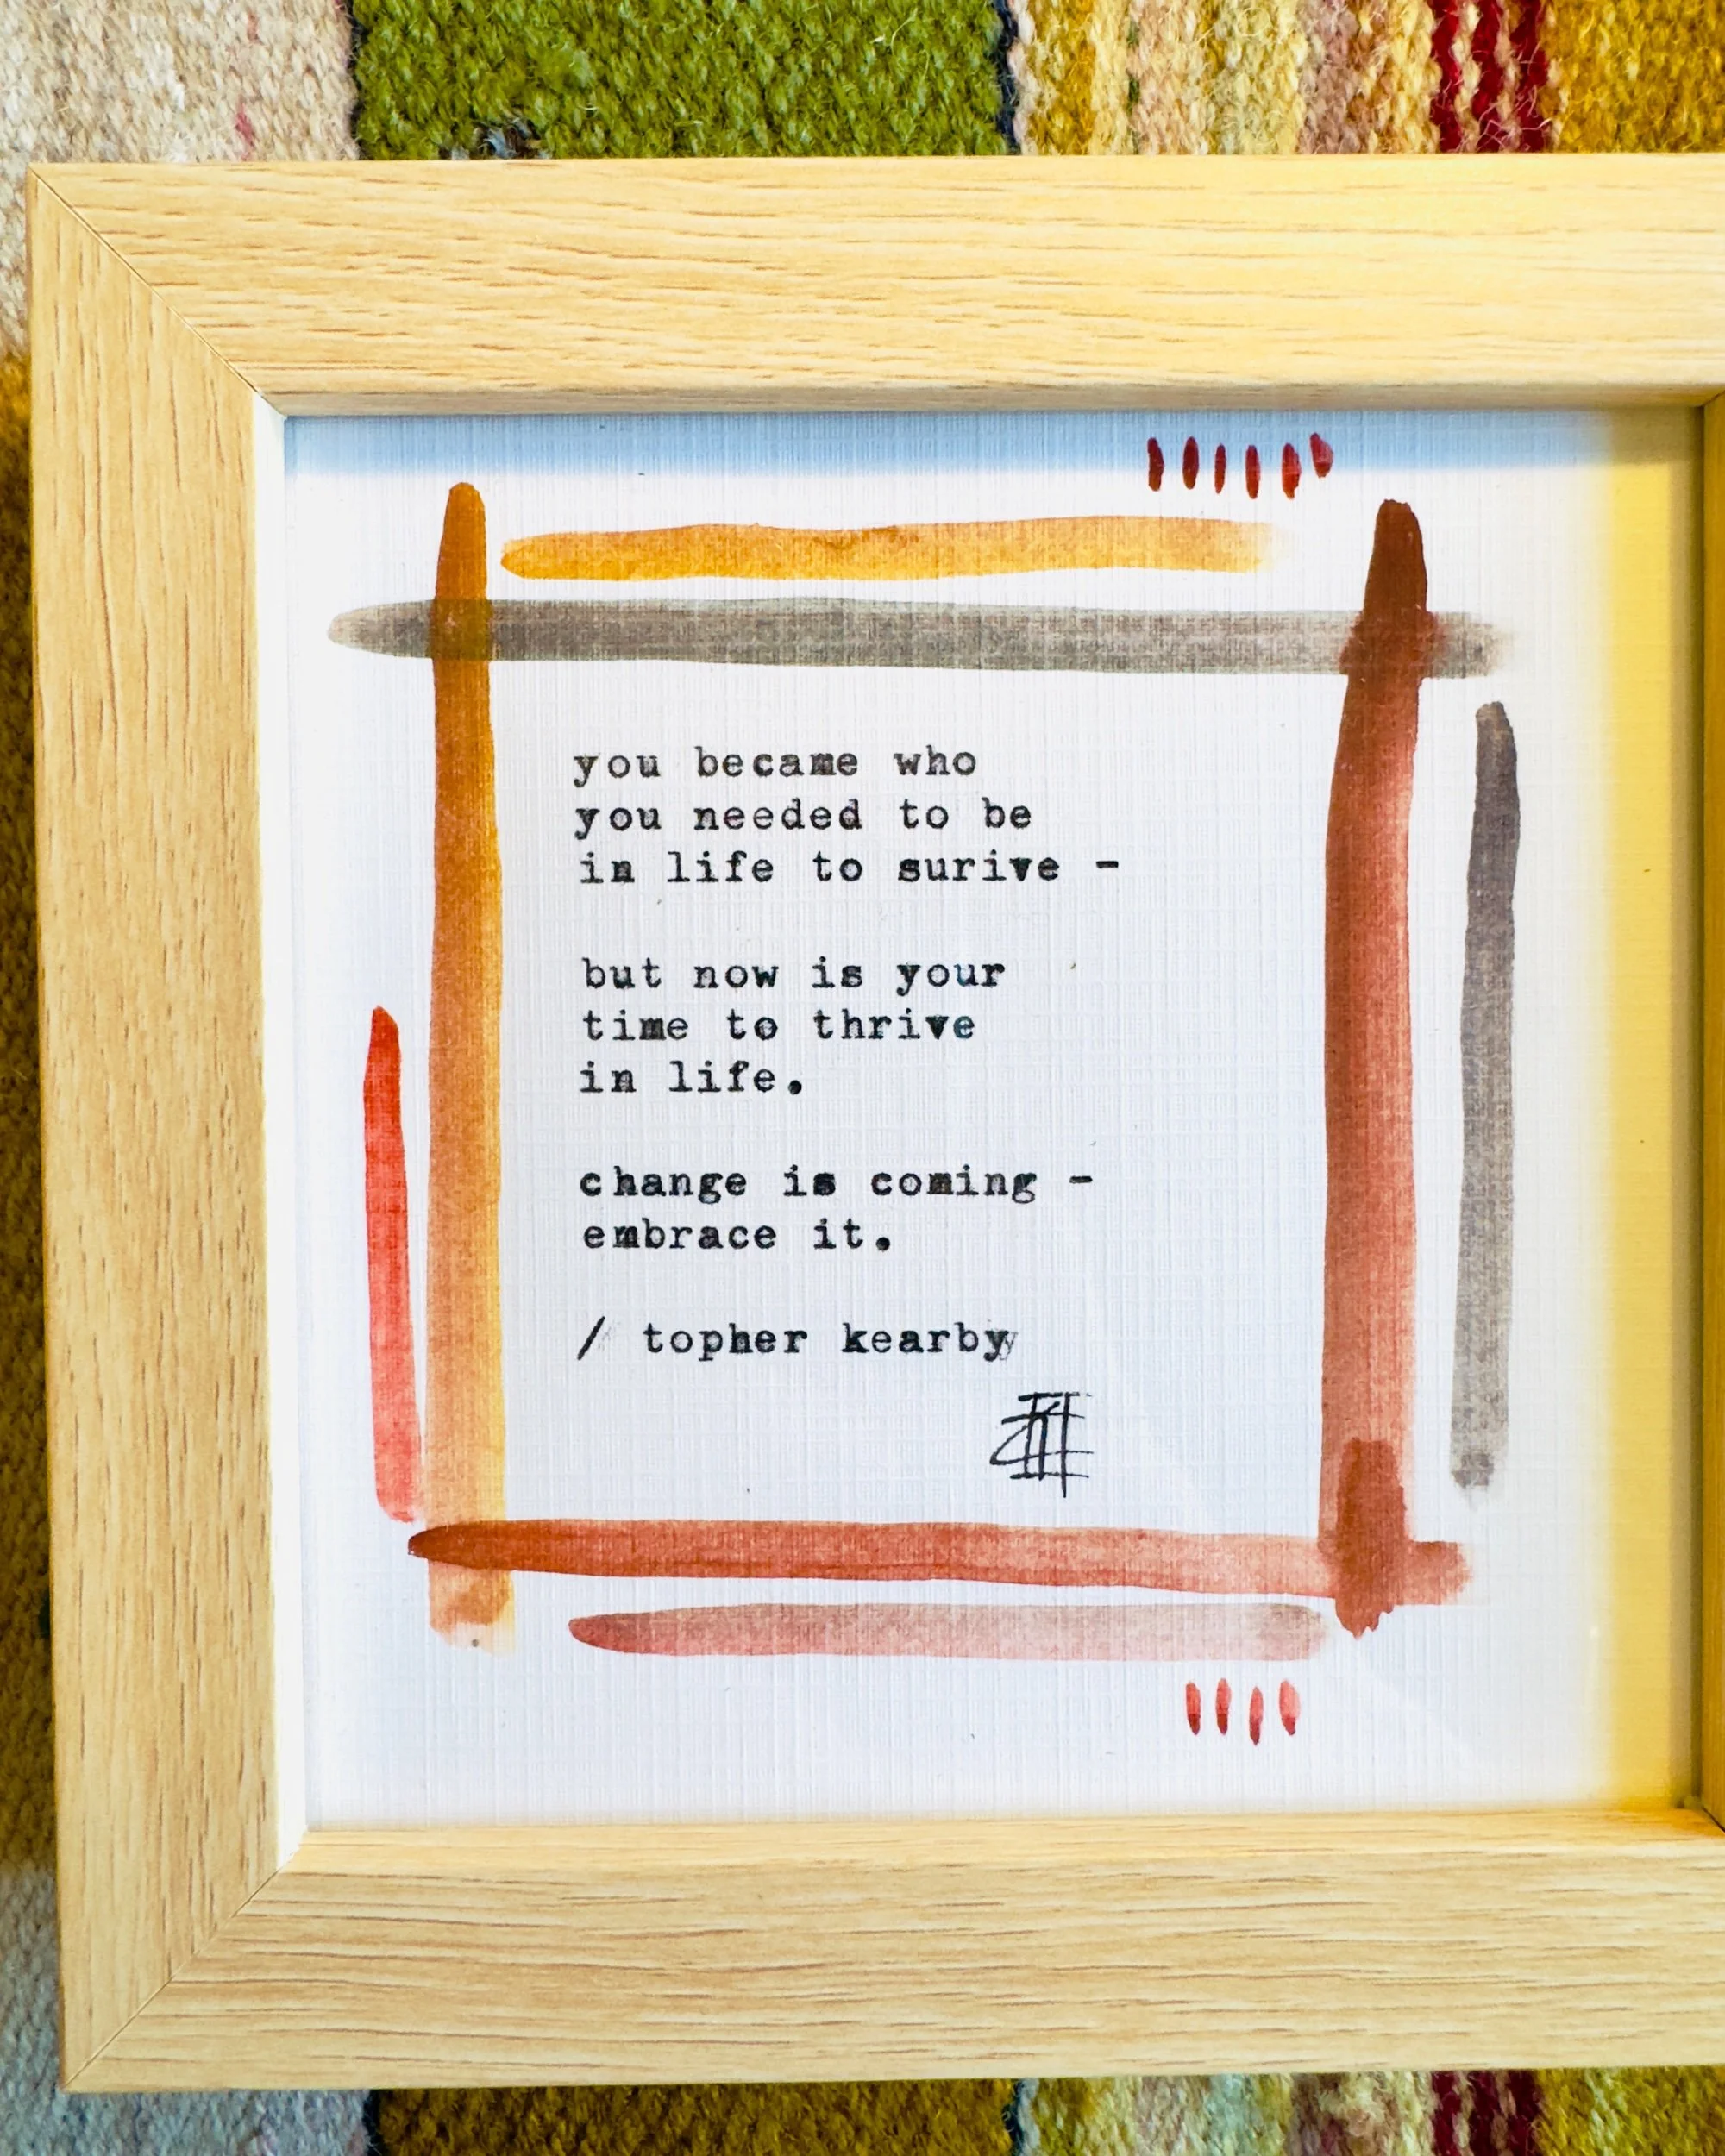 you became who
you needed to be
in life to surive -
but now is your
time to thrive
in life.
change is coming -
embrace it.
/ topher kearby